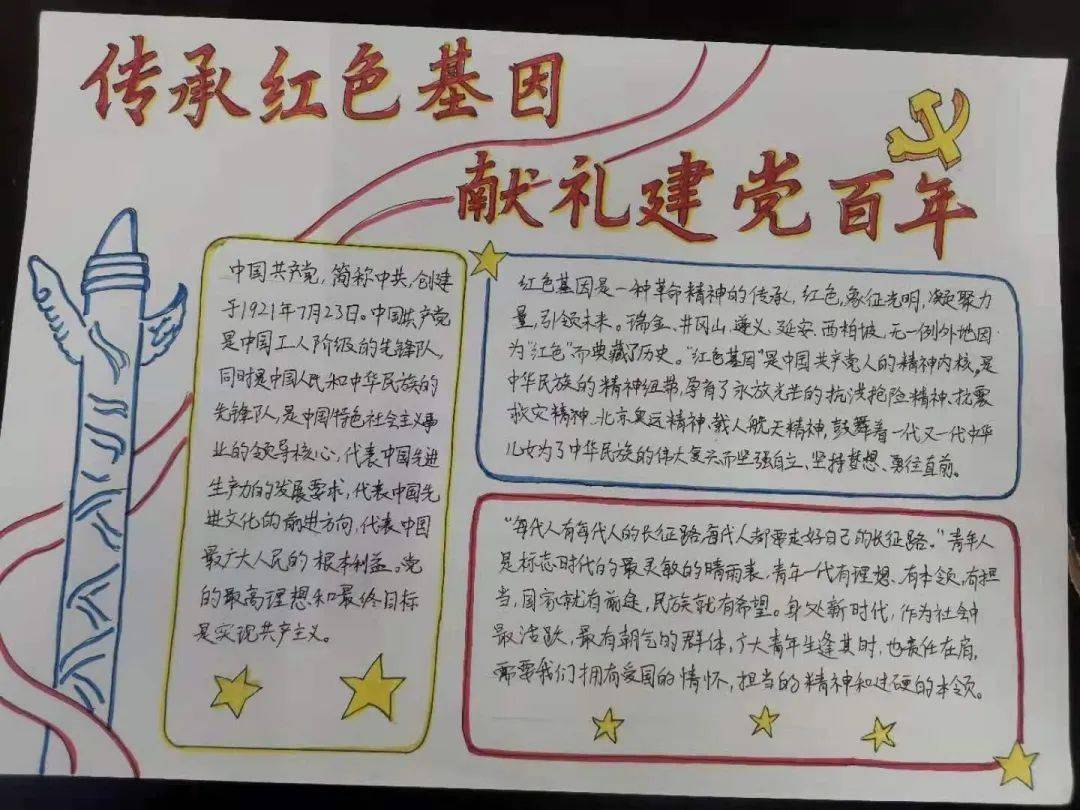 传承红色基因
献礼建党百年
中国共产党,简称中共,创建
于1921年7月23日。中国共产党
是中国工人阶级的先锋队,
同时是中国人民和中华民族的
先锋队,是中国特色社会主义事
业的领导核心,代表中国先进
生产力的发展要求,代表中国先
进文化的前进方向,代表中国
最广大人民的根本利益。党
的最高理想和最终目标
是实现共产主义。
红色基因是一种革命精神的传承,红色,象征光明,凝聚力
量,引领未来。瑞金、井冈山、遵义、延安、西柏坡,无一例外地因
为“红色”而典藏了历史。“红色基因”是中国共产党人的精神内核,是
中华民族的精神纽带,孕育了永放光芒的抗洪抢险精神、抗震
救灾精神、北京奥运精神、载人航天精神,鼓舞着一代又一代中华
儿女为了中华民族的伟大复兴而坚强自立、坚持梦想、勇往直前。
“每代人有每代人的长征路,每代人都要走好自己的长征路。”青年人
是标志时代的最灵敏的晴雨表,青年一代有理想、有本领,有担
当,国家就有前途,民族就有希望。身处新时代,作为社会中
最活跃,最有朝气的群体,广大青年生逢其时,也责任在肩,
需要我们拥有爱国的情怀,担当的精神和过硬的本领。